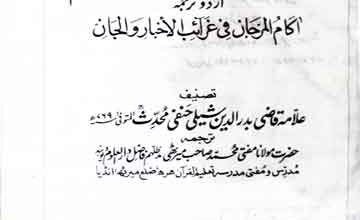 اردو ترجمہ
آکام المرجان فی غرائب الاخبار والجان
تصنیف
علامہ قاضی بدرالدین شبلی حنفی محدث المتوفی ۷۶۹ھ
ترجمہ
حضرت مولانا مفتی محمد صاحب میرٹھی مدظلہم فاضل دارالعلوم دیوبند
مدرس و مفتی مدرسہ تعلیم القرآن ضلع میرٹھ انڈیا